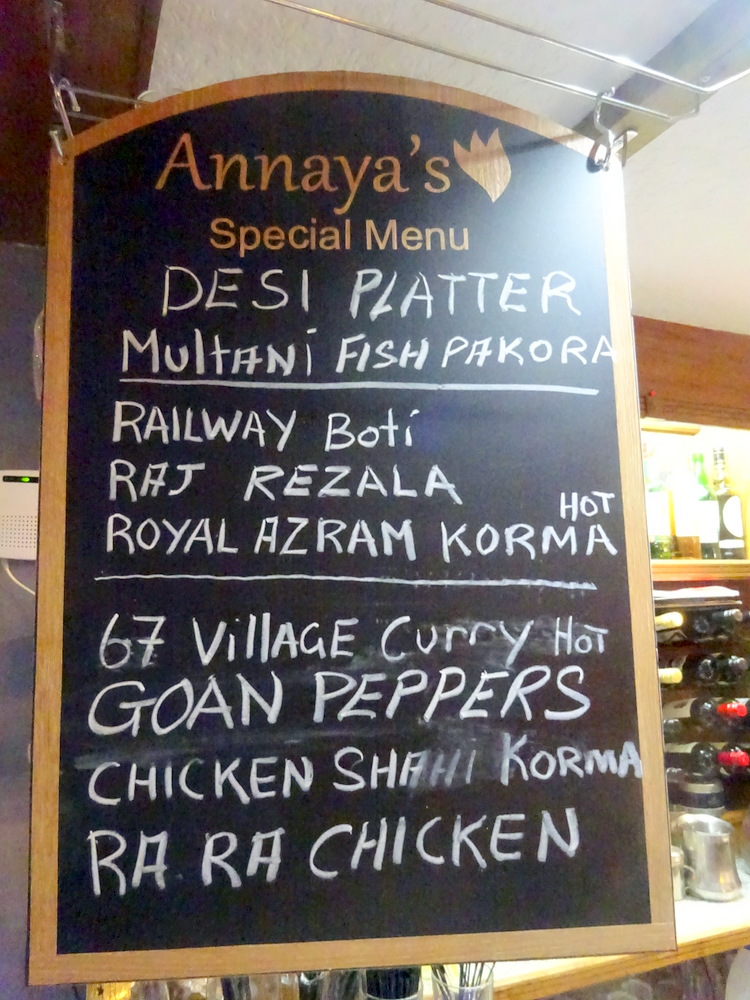 Annaya's
Special Menu
DESI PLATTER
MultANi FISH PAKORA
RAILWAY Boti
RAJ REZALA
HOT
ROYAL AZRAM KORMA
67 VillAGE Curry HoT
GOAN PEPPERS
CHICKEN SHAHI KORMA
RA RA CHICKEN